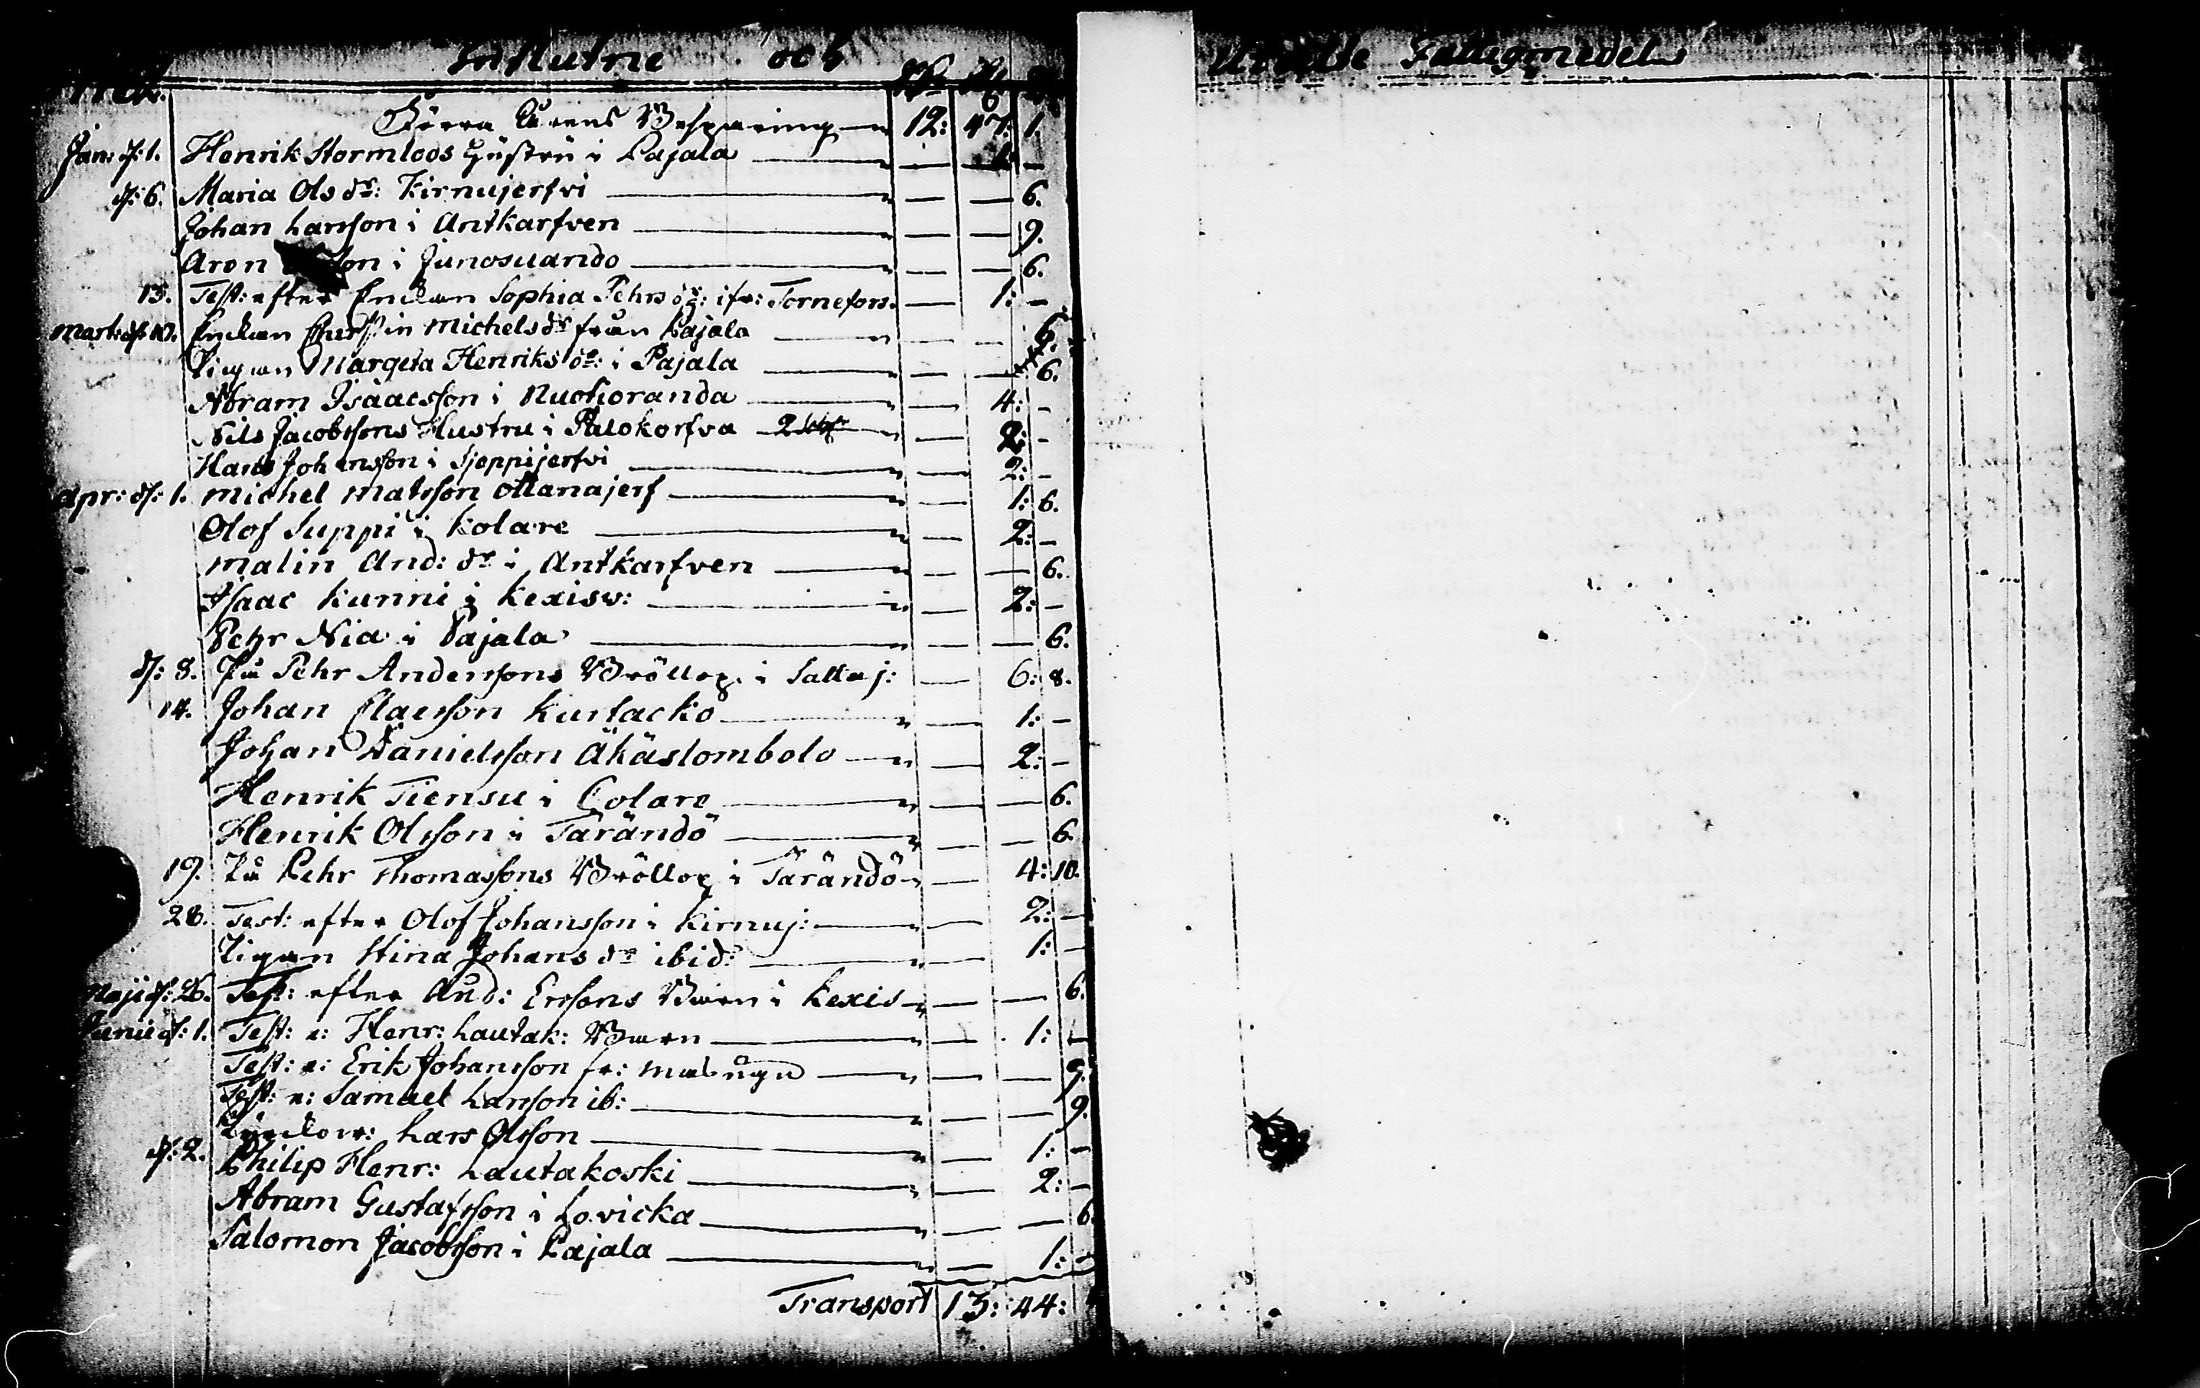 Influtne och
Förra Årens Besparing 12: 47: 1.
Jan: d: 1. Henrik Stormloos Hustru i Pajala — —
d: 6. Maria Ols dr: Kirnujerfvi — — 6.
Johan Larsson i Antkarfven — — 9.
Aron i Junosuando — — 6.
13. Test: efter Enckan Sophia Pehrs dr: ifr: Tornefors. — 1: —
Mart: d: 10. Enckan Michels dr från Pajala — —
Pigan Margeta Henriks dr: i Pajala — — 6.
Abram Isaacsson i Ruokoranda — 4: —
Nils Jacobssons Hustru i Palokorfva — 2: —
Hans Johansson i Sjeppijerfvi — 2: —
Apr: d: 1. Michel Matsson Ottanajerf — 1: 6.
Olof Suppi i Kolare — 2: —
Malin And: dr i Antkarfven — — 6.
Isaac Kunni i Kexisv: — 2: —
Pehr Nia i Pajala — — 6.
d: 8. På Pehr Anderssons Bröllop i Sattaj: — 6: 8.
14. Johan Claesson Kurtacko — 1: —
Johan Danielsson Äkäslombolo — 2: —
Henrik Tiensu i Colare — — 6.
Henrik Olsson i Tärändö — — 6.
19. På Pehr Thomassons Bröllop i Tärändö — 4: 10.
28. Test: efter Olof Johansson i Kirnuj: — 2: —
Pigan Stina Johans dr ibid: — 1: —
Maji d: 26. Test: efter And: Erssons Barn i Kexis — — 6.
Junii d: 1. Test: e: Henr: Lautak: Barn — 1: —
Test: e: Erik Johansson fr: Masugn — — 9.
Test: e: Samuel Larsson ib: — — 9.
Lars Olsson — 1: —
d: 2. Philip Henr: Lautakoski — 2: —
Abram Gustafsson i Lovicka — — 6.
Salomon Jacobsson i Pajala — 1: —
Transport 13: 44:
Utgifne Fattigmedel